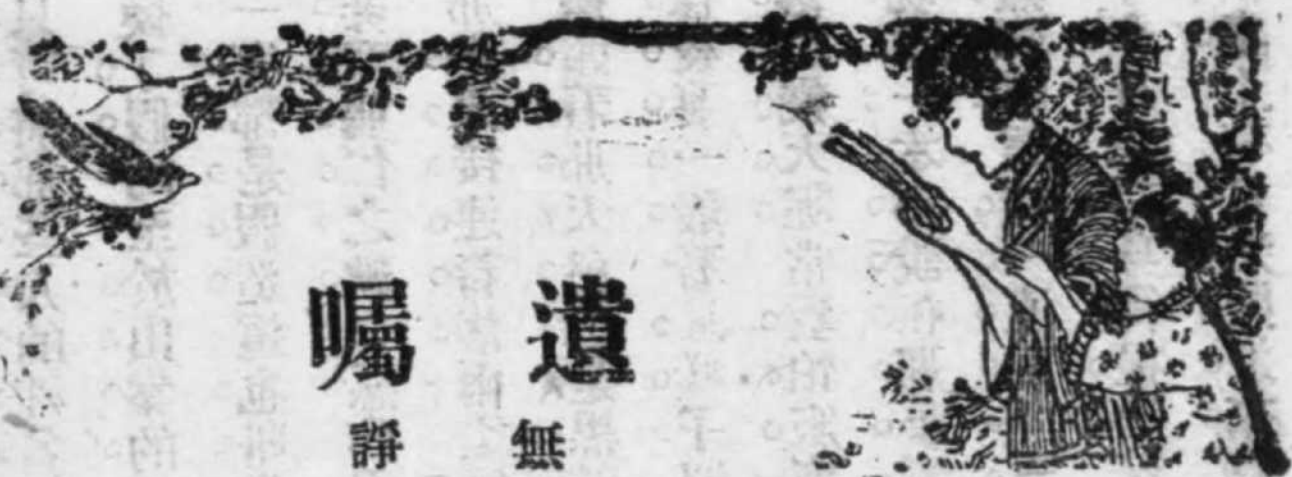 遺囑
無諍